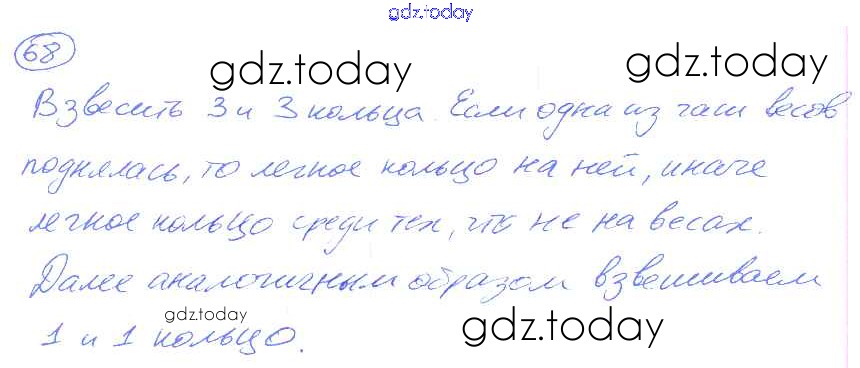 gdz.today
68
gdz.today
gdz.today
Взвесить 3 и 3 кольца. Если одна из чаш весов
поднялась, то легкое кольцо на ней, иначе
легкое кольцо среди тех, что не на весах.
Далее аналогичным образом взвешиваем
gdz.today
gdz.today
1 и 1 кольцо.